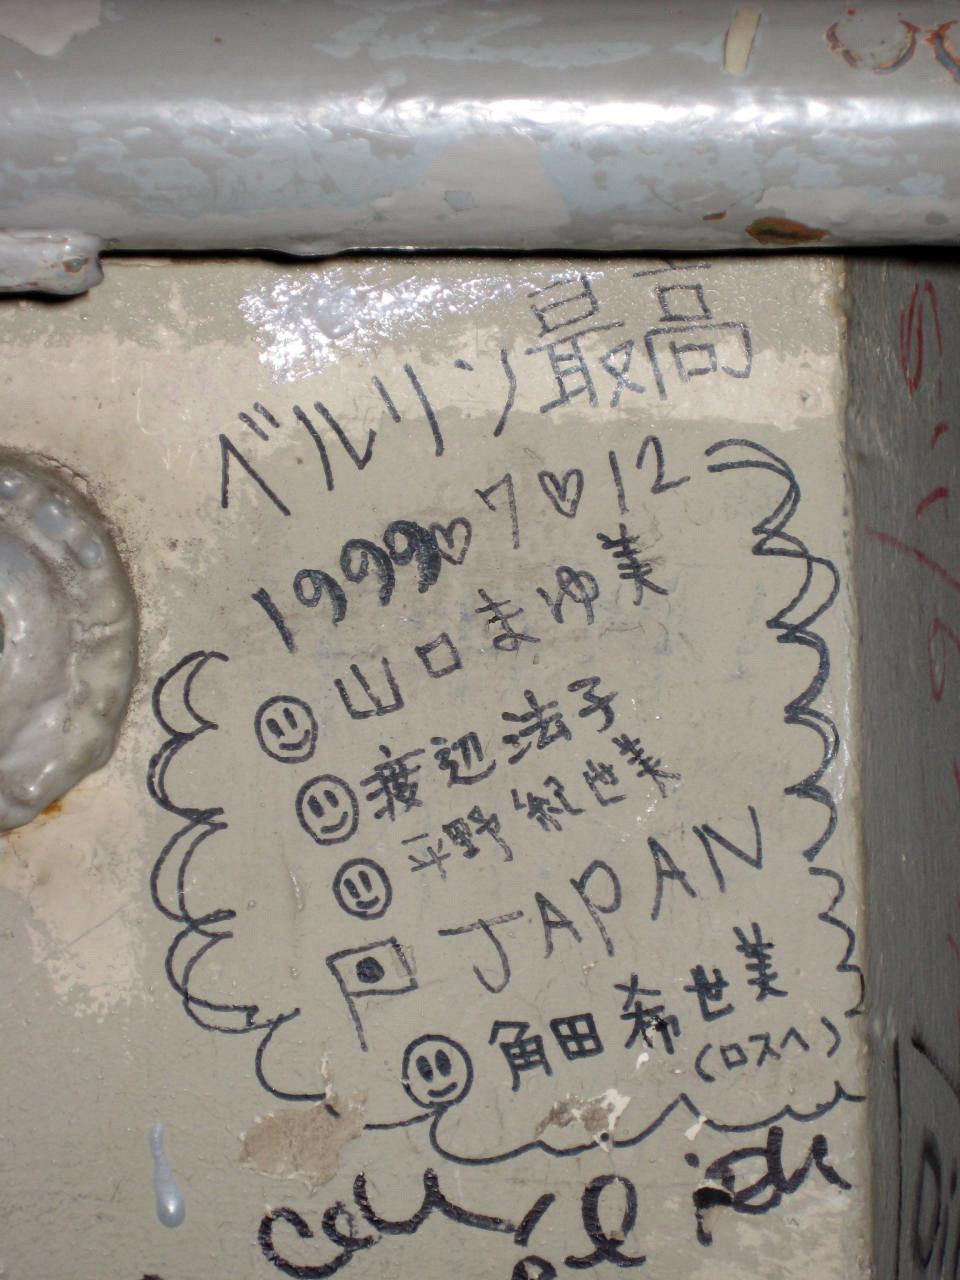 ベルリン最高
1999♡7♡12
山口まゆ美
渡辺法子
平野紀世美
JAPAN
角田希世美
(ロスへ)